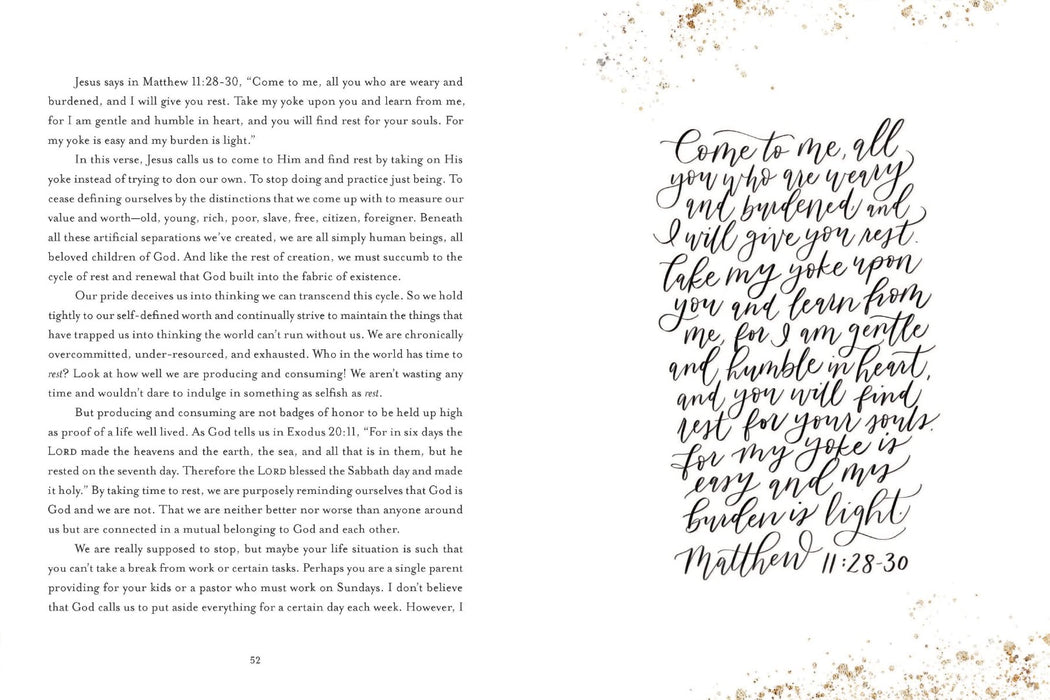 Jesus says in Matthew 11:28-30, “Come to me, all you who are weary and
burdened, and I will give you rest. Take my yoke upon you and learn from me,
for I am gentle and humble in heart, and you will find rest for your souls. For
my yoke is easy and my burden is light.”
In this verse, Jesus calls us to come to Him and find rest by taking on His
yoke instead of trying to don our own. To stop doing and practice just being. To
cease defining ourselves by the distinctions that we come up with to measure our
value and worth—old, young, rich, poor, slave, free, citizen, foreigner. Beneath
all these artificial separations we’ve created, we are all simply human beings, all
beloved children of God. And like the rest of creation, we must succumb to the
cycle of rest and renewal that God built into the fabric of existence.
Our pride deceives us into thinking we can transcend this cycle. So we hold
tightly to our self-defined worth and continually strive to maintain the things that
have trapped us into thinking the world can’t run without us. We are chronically
overcommitted, under-resourced, and exhausted. Who in the world has time to
rest? Look at how well we are producing and consuming! We aren’t wasting any
time and wouldn’t dare to indulge in something as selfish as rest.
But producing and consuming are not badges of honor to be held up high
as proof of a life well lived. As God tells us in Exodus 20:11, “For in six days the
LORD made the heavens and the earth, the sea, and all that is in them, but he
rested on the seventh day. Therefore the LORD blessed the Sabbath day and made
it holy.” By taking time to rest, we are purposely reminding ourselves that God is
God and we are not. That we are neither better nor worse than anyone around
us but are connected in a mutual belonging to God and each other.
We are really supposed to stop, but maybe your life situation is such that
you can’t take a break from work or certain tasks. Perhaps you are a single parent
providing for your kids or a pastor who must work on Sundays. I don’t believe
that God calls us to put aside everything for a certain day each week. However, I
52
Come to me, all
you who are weary
and burdened, and
I will give you rest.
Take my yoke upon
you and learn from
me, for I am gentle
and humble in heart,
and you will find
rest for your souls.
for my yoke is
easy and my
burden is light.
Matthew 11:28-30